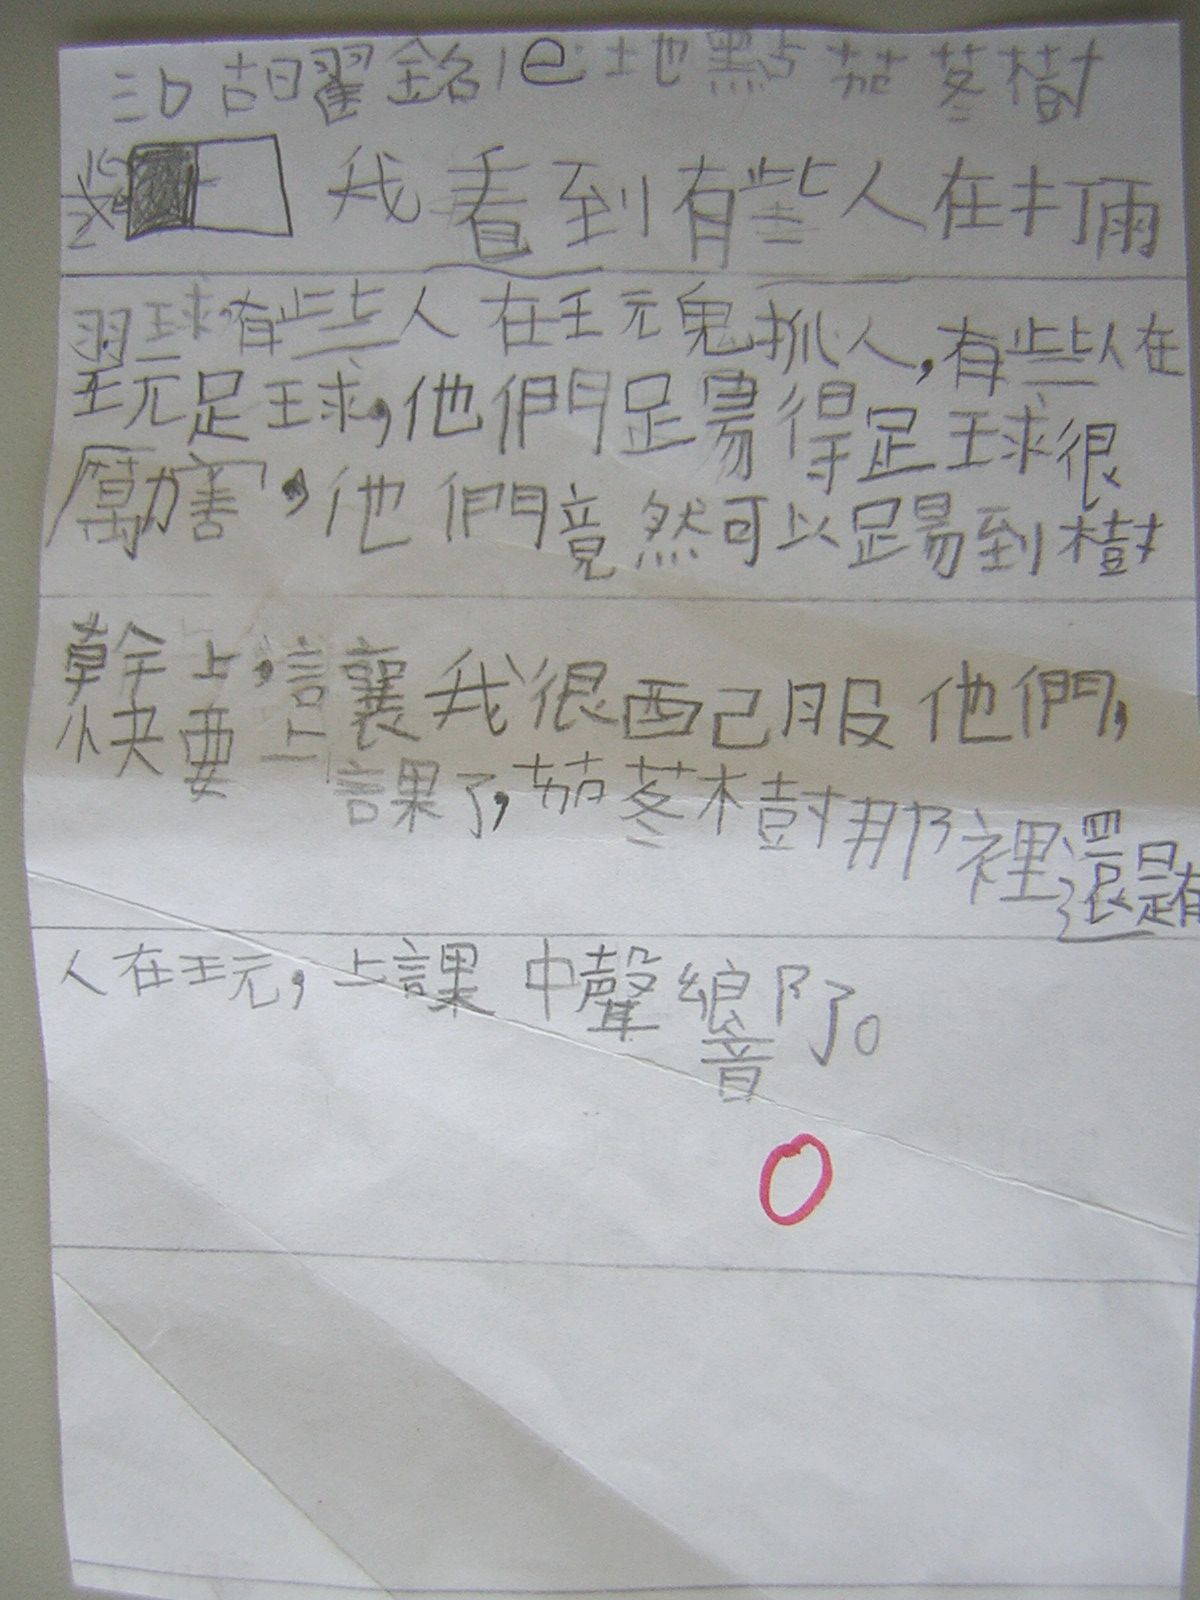 三b 胡曜銘 10 地點 茄苳樹
我看到有些人在打雨
習球,有些人在玩鬼抓人,有些人在
玩足球,他們踢得足球很
厲害,他們竟然可以踢到樹
幹上,讓我很配服他們,
快要上課了,茄苳樹那裡還是有
人在玩,上課中聲響了。